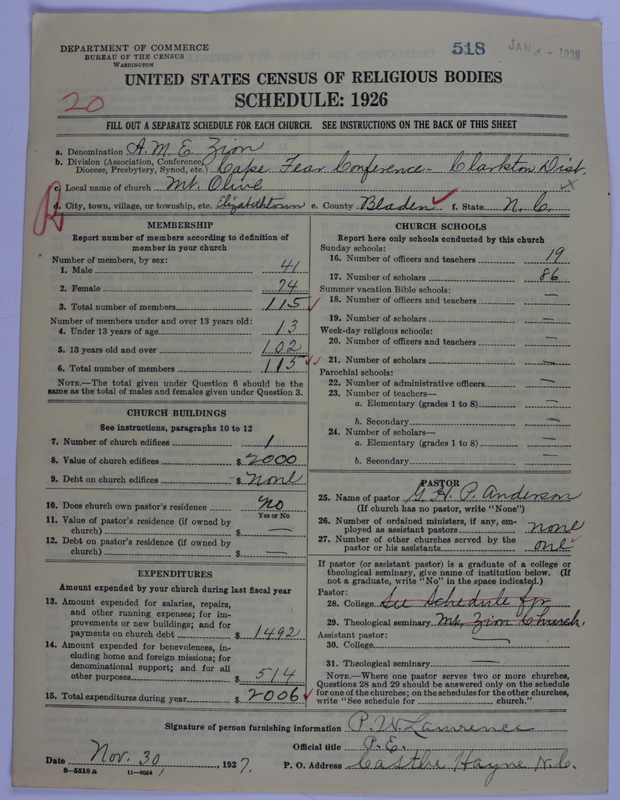 DEPARTMENT OF COMMERCE
BUREAU OF THE CENSUS
WASHINGTON
518
JAN 4 - 1928
UNITED STATES CENSUS OF RELIGIOUS BODIES
SCHEDULE: 1926
20
FILL OUT A SEPARATE SCHEDULE FOR EACH CHURCH. SEE INSTRUCTIONS ON THE BACK OF THIS SHEET
a. Denomination A. M. E. Zion
b. Division (Association, Conference, Diocese, Presbytery, Synod, etc.) Cape Fear Conference - Clarkton Dist.
c. Local name of church Mt. Olive
d. City, town, village, or township, etc. Elizabethtown e. County Bladen f. State N. C.
MEMBERSHIP
Report number of members according to definition of
member in your church
Number of members, by sex:
1. Male 41
2. Female 74
3. Total number of members 115
Number of members under and over 13 years old:
4. Under 13 years of age 13
5. 13 years old and over 102
6. Total number of members 115
NOTE.—The total given under Question 6 should be
same as the total of males and females given under Question 3.
CHURCH BUILDINGS
See instructions, paragraphs 10 to 12
7. Number of church edifices 1
8. Value of church edifices $ 2000
9. Debt on church edifices $ None
10. Does church own pastor's residence no
Yes or No
11. Value of pastor's residence (if owned by
church) $ —
12. Debt on pastor's residence (if owned by
church) $ —
EXPENDITURES
Amount expended by your church during last fiscal year
13. Amount expended for salaries, repairs,
and other running expenses; for im-
provements or new buildings; and for
payments on church debt $ 1492
14. Amount expended for benevolences, in-
cluding home and foreign missions; for
denominational support; and for all
other purposes $ 514
15. Total expenditures during year $ 2006
CHURCH SCHOOLS
Report here only schools conducted by this church
Sunday schools:
16. Number of officers and teachers 19
17. Number of scholars 86
Summer vacation Bible schools:
18. Number of officers and teachers —
19. Number of scholars —
Week-day religious schools:
20. Number of officers and teachers —
21. Number of scholars —
Parochial schools:
22. Number of administrative officers —
23. Number of teachers—
a. Elementary (grades 1 to 8) —
b. Secondary —
24. Number of scholars—
a. Elementary (grades 1 to 8) —
b. Secondary —
PASTOR
25. Name of pastor G. H. P. Anderson
(If church has no pastor, write "None")
26. Number of ordained ministers, if any, em-
ployed as assistant pastors none
27. Number of other churches served by the
pastor or his assistants one
If pastor (or assistant pastor) is a graduate of a college or
theological seminary, give name of institution below. (If
not a graduate, write "No" in the space indicated.)
Pastor:
28. College See Schedule for
29. Theological seminary Mt. Zion Church.
Assistant pastor:
30. College —
31. Theological seminary —
NOTE.—Where one pastor serves two or more churches,
Questions 28 and 29 should be answered only on the schedule
for one of the churches; on the schedules for the other churches,
write "See schedule for church."
Signature of person furnishing information P. W. Lawrence
Official title P. E.
Date Nov. 30, 1927. P. O. Address Castle Hayne N. C.
8-5518 a 11-9054